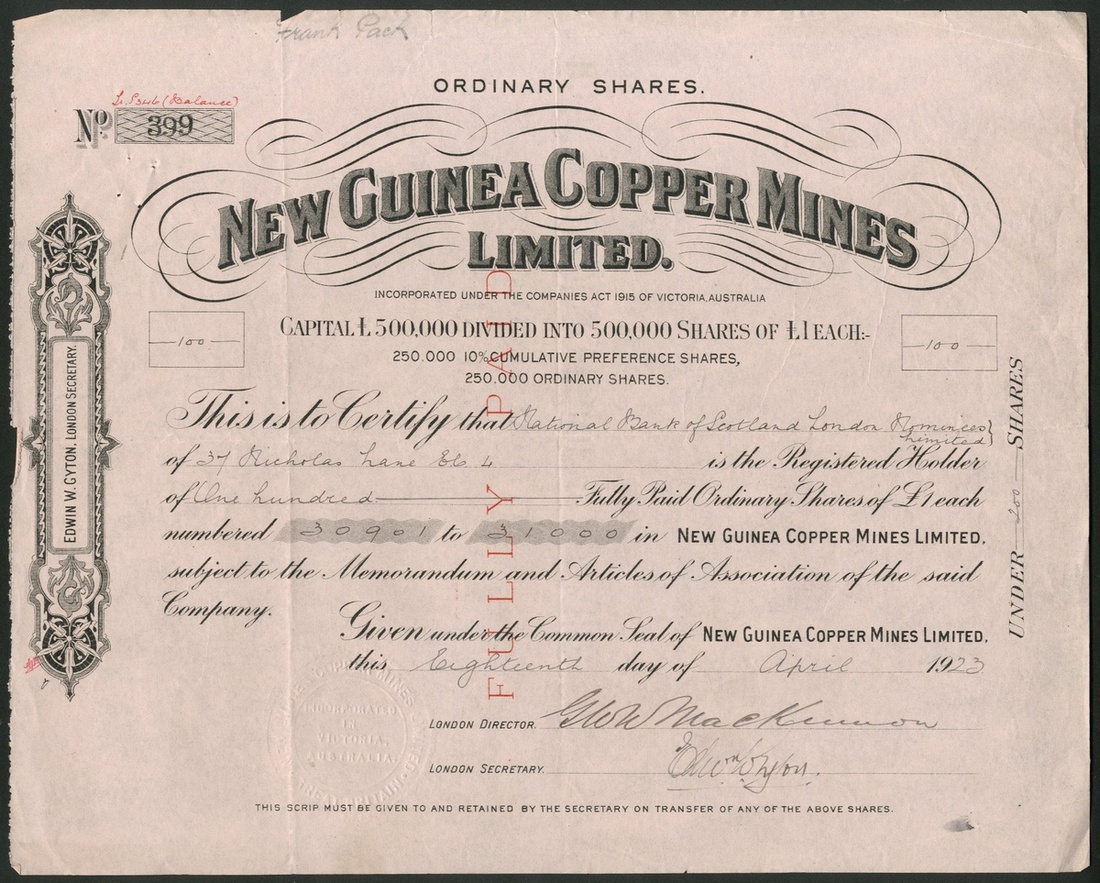 Frank Pack
ORDINARY SHARES.
(Balance)
No. 399
NEW GUINEA COPPER MINES
LIMITED.
INCORPORATED UNDER THE COMPANIES ACT 1915 OF VICTORIA, AUSTRALIA
CAPITAL £500,000 DIVIDED INTO 500,000 SHARES OF £1 EACH:-
100
100
250.000 10% CUMULATIVE PREFERENCE SHARES,
250.000 ORDINARY SHARES.
This is to Certify that National Bank of Scotland London Nominees
Limited
of 37 Nicholas Lane EC. 4 is the Registered Holder
of One hundred Fully Paid Ordinary Shares of £1 each
numbered 30901 to 31000 in NEW GUINEA COPPER MINES LIMITED,
subject to the Memorandum and Articles of Association of the said
Company.
Given under the Common Seal of NEW GUINEA COPPER MINES LIMITED,
this Eighteenth day of April 1923
LONDON DIRECTOR. Geo W MacKinnon
LONDON SECRETARY. Edwn W Gyton.
THIS SCRIP MUST BE GIVEN TO AND RETAINED BY THE SECRETARY ON TRANSFER OF ANY OF THE ABOVE SHARES.
EDWIN W. GYTON. LONDON SECRETARY.
FULLY PAID
UNDER 200 SHARES
INCORPORATED
IN
VICTORIA,
AUSTRALIA.